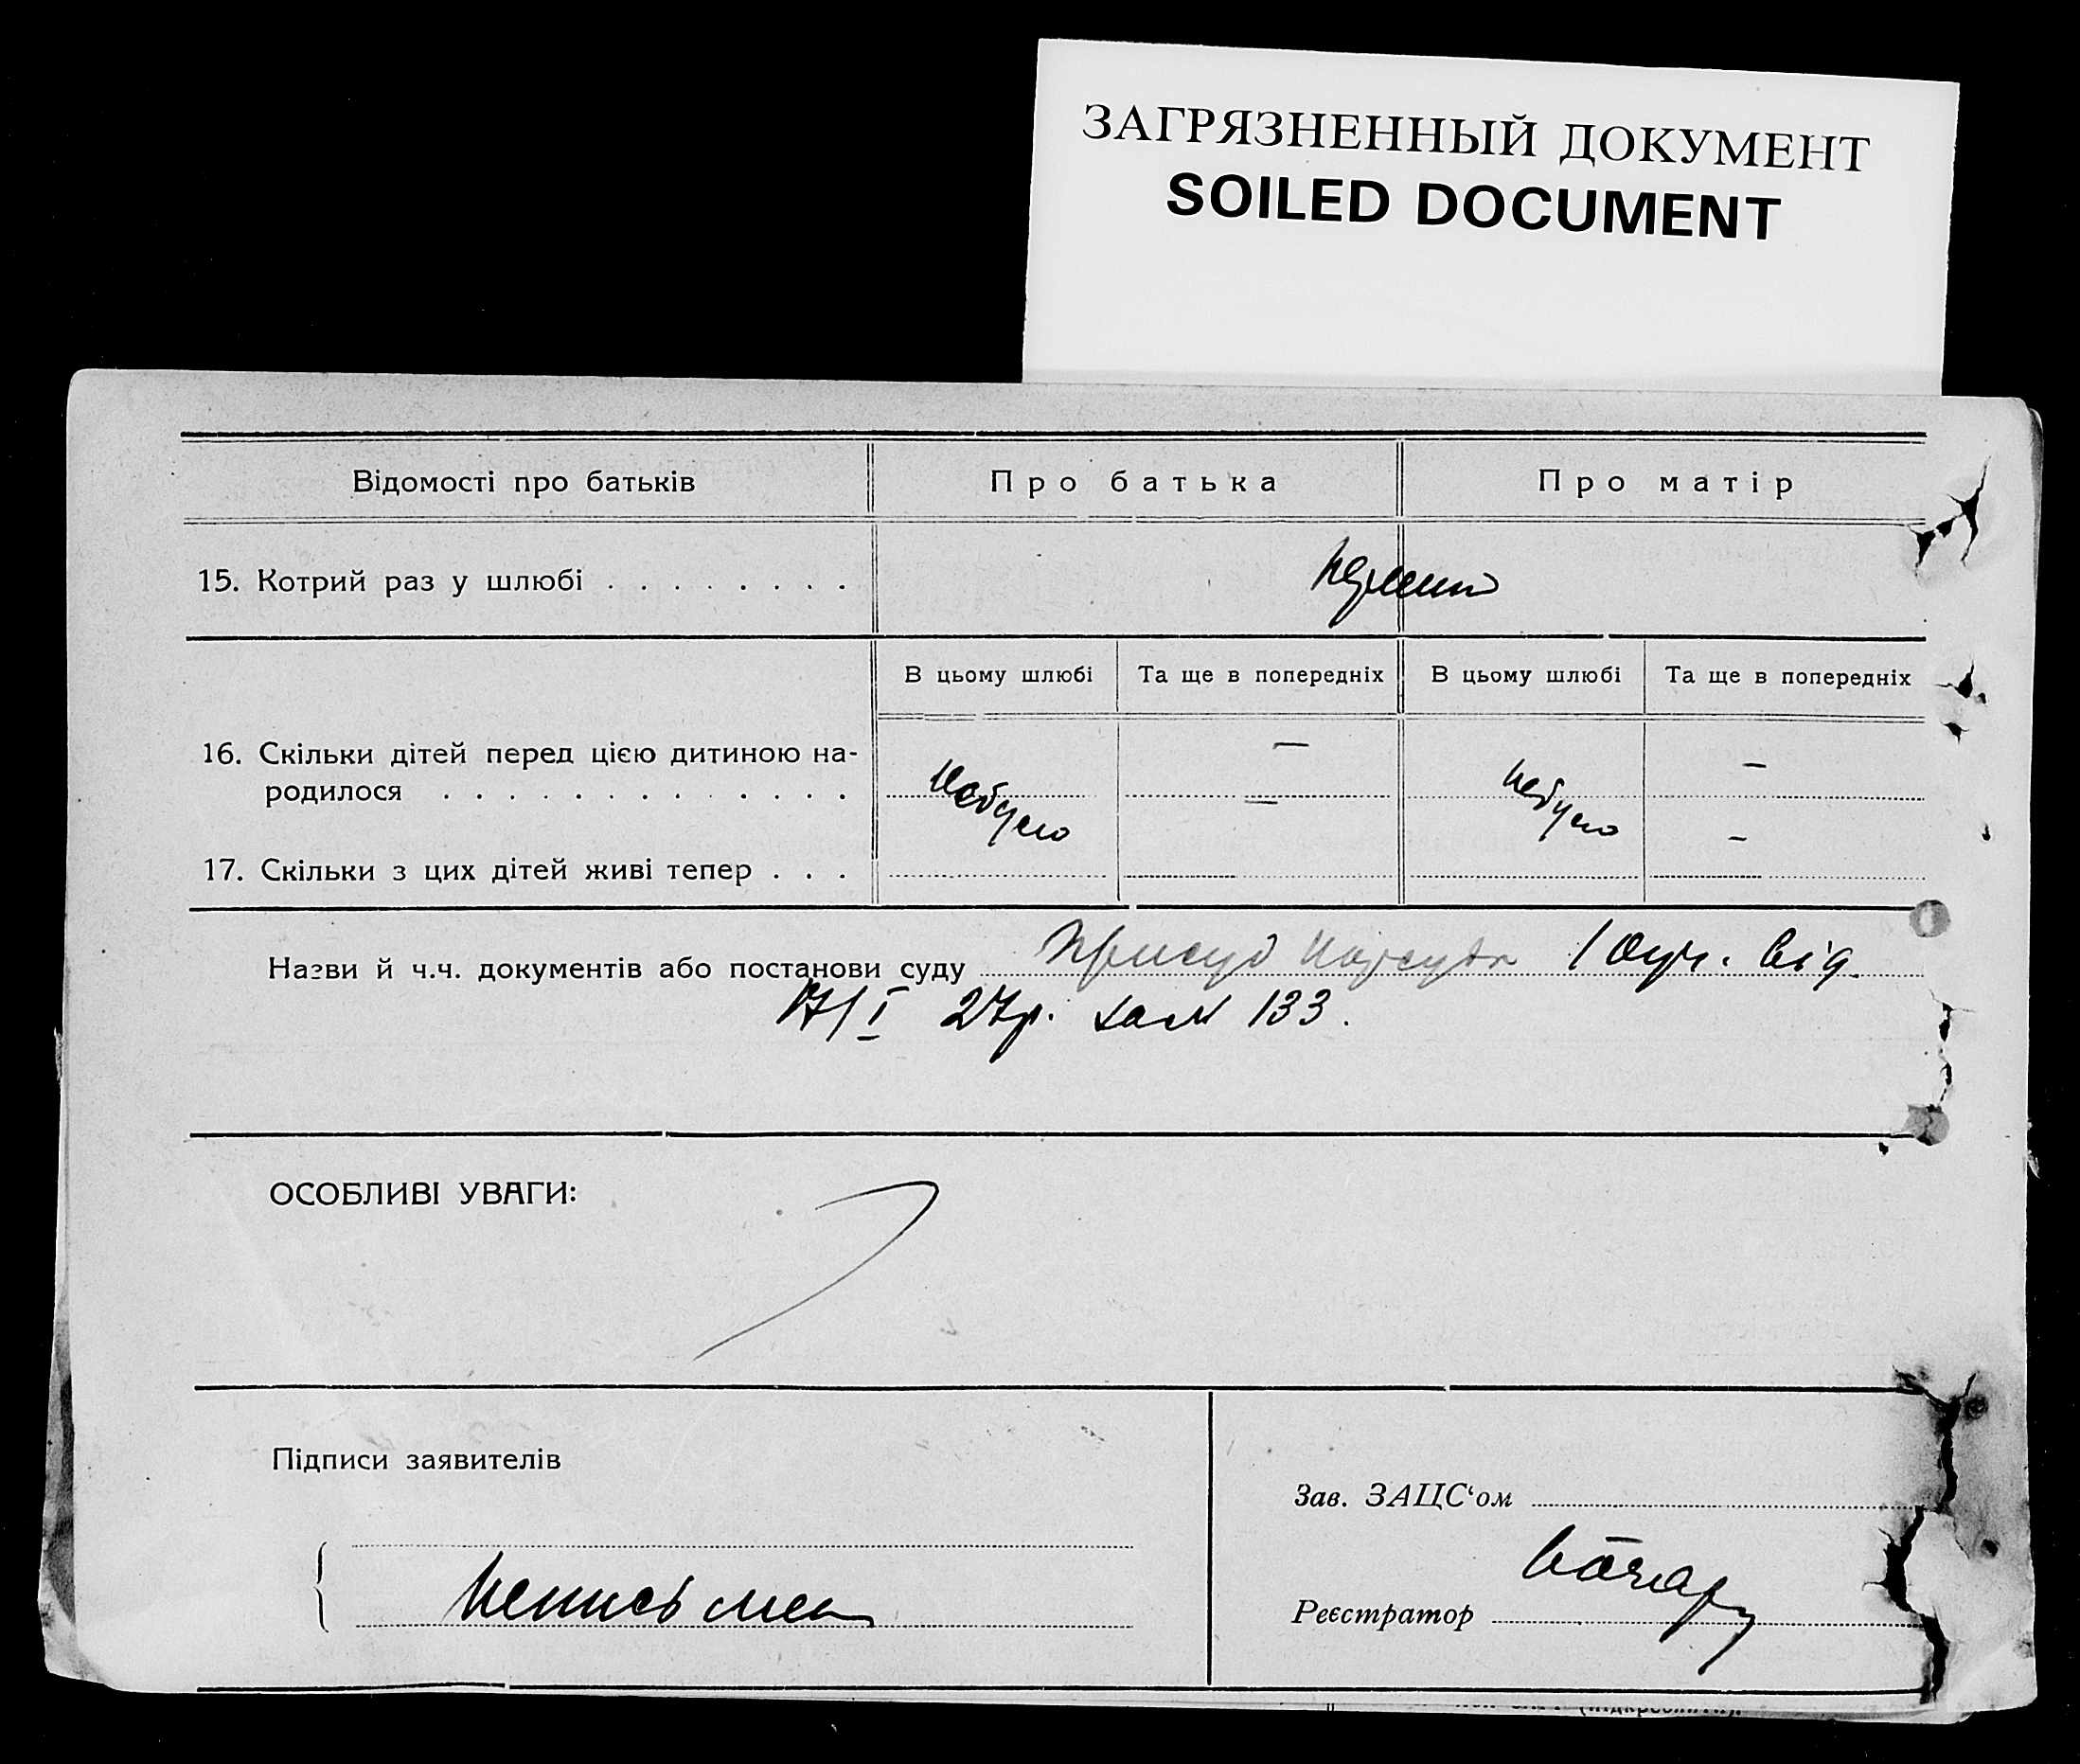 ЗАГРЯЗНЕННЫЙ ДОКУМЕНТ
SOILED DOCUMENT
Відомості про батьків
Про батька
Про матір
15. Котрий раз у шлюбі . . . . . . . .
В цьому шлюбі
Та ще в попередніх
В цьому шлюбі
Та ще в попередніх
16. Скільки дітей перед цією дитиною на-
родилося . . . . . . . . . . . . .
небуло
—
небуло
—
—
—
17. Скільки з цих дітей живі тепер . . .
Назви й ч.ч. документів або постанови суду Присуд Нарсуда 1 Окр. від
17/I 27р. 133.
ОСОБЛИВІ УВАГИ:
Підписи заявителів
неписьмен
Зав. ЗАЦС‘ом
Реєстратор